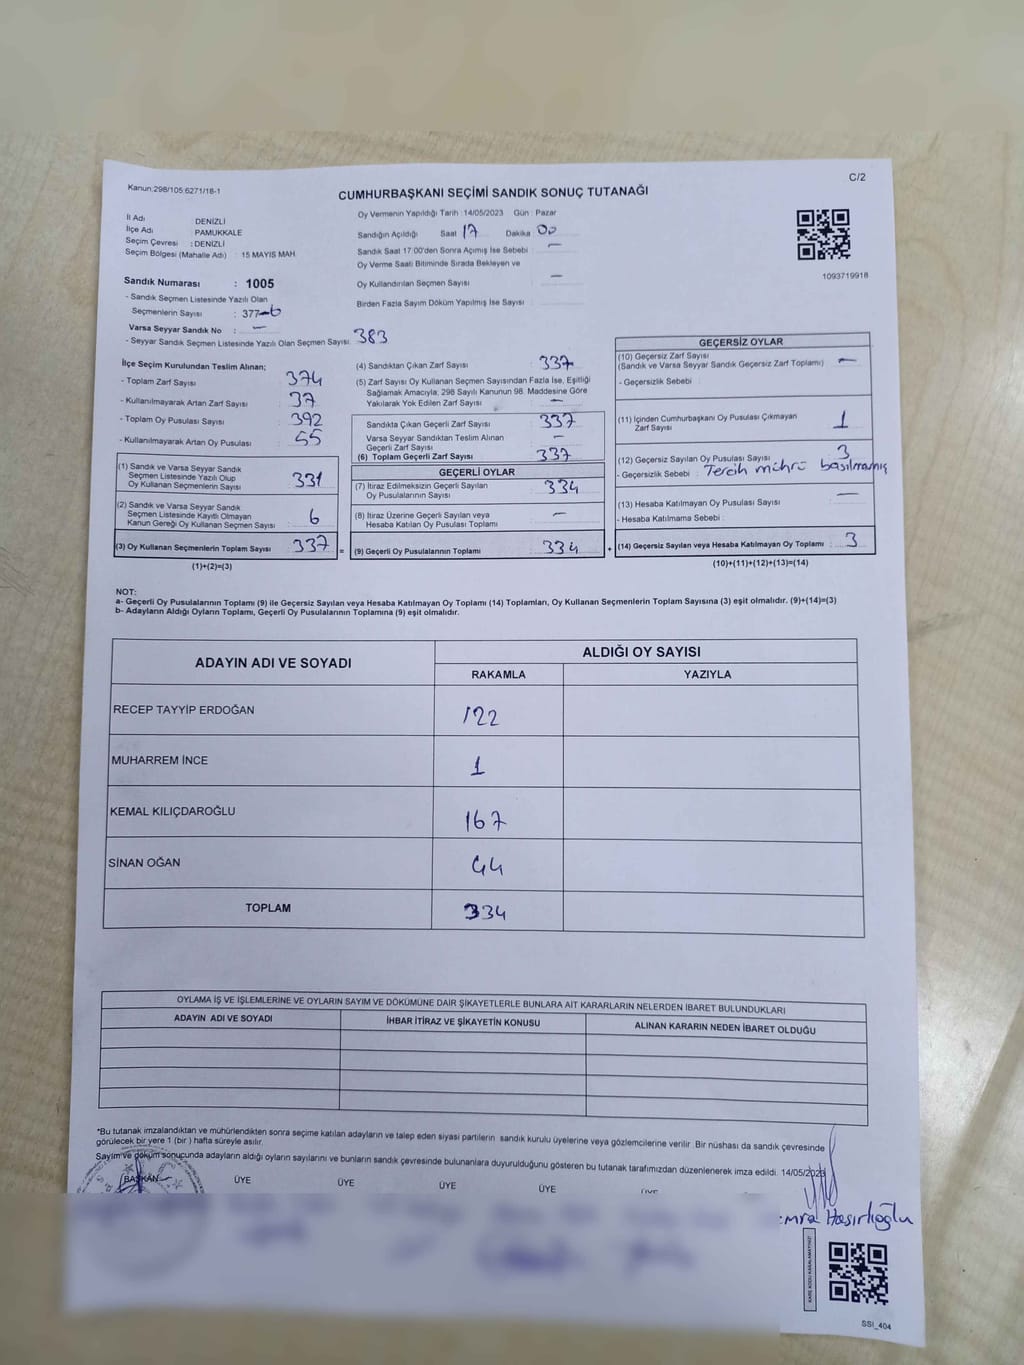 Kanun:298/105:6271/18-1
C/2
CUMHURBAŞKANI SEÇİMİ SANDIK SONUÇ TUTANAĞI
İl Adı : DENİZLİ
İlçe Adı : PAMUKKALE
Seçim Çevresi : DENİZLİ
Seçim Bölgesi (Mahalle Adı) : 15 MAYIS MAH.
Oy Vermenin Yapıldığı Tarih :14/05/2023 Gün : Pazar
Sandığın Açıldığı Saat 17 Dakika 00
Sandık Saat 17:00'den Sonra Açımış İse Sebebi : —
Oy Verme Saati Bitiminde Sırada Bekleyen ve
Oy Kullandırılan Seçmen Sayısı : —
Birden Fazla Sayım Döküm Yapılmış İse Sayısı :
1093719918
Sandık Numarası : 1005
- Sandık Seçmen Listesinde Yazılı Olan
Seçmenlerin Sayısı : 377-6
Varsa Seyyar Sandık No : —
- Seyyar Sandık Seçmen Listesinde Yazılı Olan Seçmen Sayısı: 383
İlçe Seçim Kurulundan Teslim Alınan;
- Toplam Zarf Sayısı 374
- Kullanılmayarak Artan Zarf Sayısı 37
- Toplam Oy Pusulası Sayısı 392
- Kullanılmayarak Artan Oy Pusulası 55
(1) Sandık ve Varsa Seyyar Sandık
Seçmen Listesinde Yazılı Olup
Oy Kullanan Seçmenlerin Sayısı 331
(2) Sandık ve Varsa Seyyar Sandık
Seçmen Listesinde Kayıtlı Olmayan
Kanun Gereği Oy Kullanan Seçmen Sayısı 6
(3) Oy Kullanan Seçmenlerin Toplam Sayısı 337 =
(1)+(2)=(3)
(4) Sandıktan Çıkan Zarf Sayısı 337
(5) Zarf Sayısı Oy Kullanan Seçmen Sayısından Fazla İse, Eşitliği
Sağlamak Amacıyla; 298 Sayılı Kanunun 98. Maddesine Göre
Yakılarak Yok Edilen Zarf Sayısı —
Sandıkta Çıkan Geçerli Zarf Sayısı 337
Varsa Seyyar Sandıktan Teslim Alınan
Geçerli Zarf Sayısı —
(6) Toplam Geçerli Zarf Sayısı 337
GEÇERLİ OYLAR
(7) İtiraz Edilmeksizin Geçerli Sayılan
Oy Pusulalarının Sayısı 334
(8) İtiraz Üzerine Geçerli Sayılan veya
Hesaba Katılan Oy Pusulası Toplamı —
(9) Geçerli Oy Pusulalarının Toplamı 334 +
GEÇERSİZ OYLAR
(10) Geçersiz Zarf Sayısı
(Sandık ve Varsa Seyyar Sandık Geçersiz Zarf Toplamı) —
- Geçersizlik Sebebi :
(11) İçinden Cumhurbaşkanı Oy Pusulası Çıkmayan
Zarf Sayısı 1
(12) Geçersiz Sayılan Oy Pusulası Sayısı 3
- Geçersizlik Sebebi : Tercih mührü basılmamış
(13) Hesaba Katılmayan Oy Pusulası Sayısı —
- Hesaba Katılmama Sebebi :
(14) Geçersiz Sayılan veya Hesaba Katılmayan Oy Toplamı : 3
(10)+(11)+(12)+(13)=(14)
NOT:
a- Geçerli Oy Pusulalarının Toplamı (9) ile Geçersiz Sayılan veya Hesaba Katılmayan Oy Toplamı (14) Toplamları, Oy Kullanan Seçmenlerin Toplam Sayısına (3) eşit olmalıdır. (9)+(14)=(3)
b- Adayların Aldığı Oyların Toplamı, Geçerli Oy Pusulalarının Toplamına (9) eşit olmalıdır.
ADAYIN ADI VE SOYADI
ALDIĞI OY SAYISI
RAKAMLA YAZIYLA
RECEP TAYYİP ERDOĞAN 122
MUHARREM İNCE 1
KEMAL KILIÇDAROĞLU 167
SİNAN OĞAN 44
TOPLAM 334
OYLAMA İŞ VE İŞLEMLERİNE VE OYLARIN SAYIM VE DÖKÜMÜNE DAİR ŞİKAYETLERLE BUNLARA AİT KARARLARIN NELERDEN İBARET BULUNDUKLARI
ADAYIN ADI VE SOYADI İHBAR İTİRAZ VE ŞİKAYETİN KONUSU ALINAN KARARIN NEDEN İBARET OLDUĞU
*Bu tutanak imzalandıktan ve mühürlendikten sonra seçime katılan adayların ve talep eden siyasi partilerin sandık kurulu üyelerine veya gözlemcilerine verilir. Bir nüshası da sandık çevresinde
görülecek bir yere 1 (bir ) hafta süreyle asılır.
Sayım ve döküm sonucunda adayların aldığı oyların sayılarını ve bunların sandık çevresinde bulunanlara duyurulduğunu gösteren bu tutanak tarafımızdan düzenlenerek imza edildi. 14/05/2023
BAŞKAN ÜYE ÜYE ÜYE ÜYE ÜYE
mra Hasırlıoğlu
KARE KODU KARALAMAYINIZ!
SSI_404